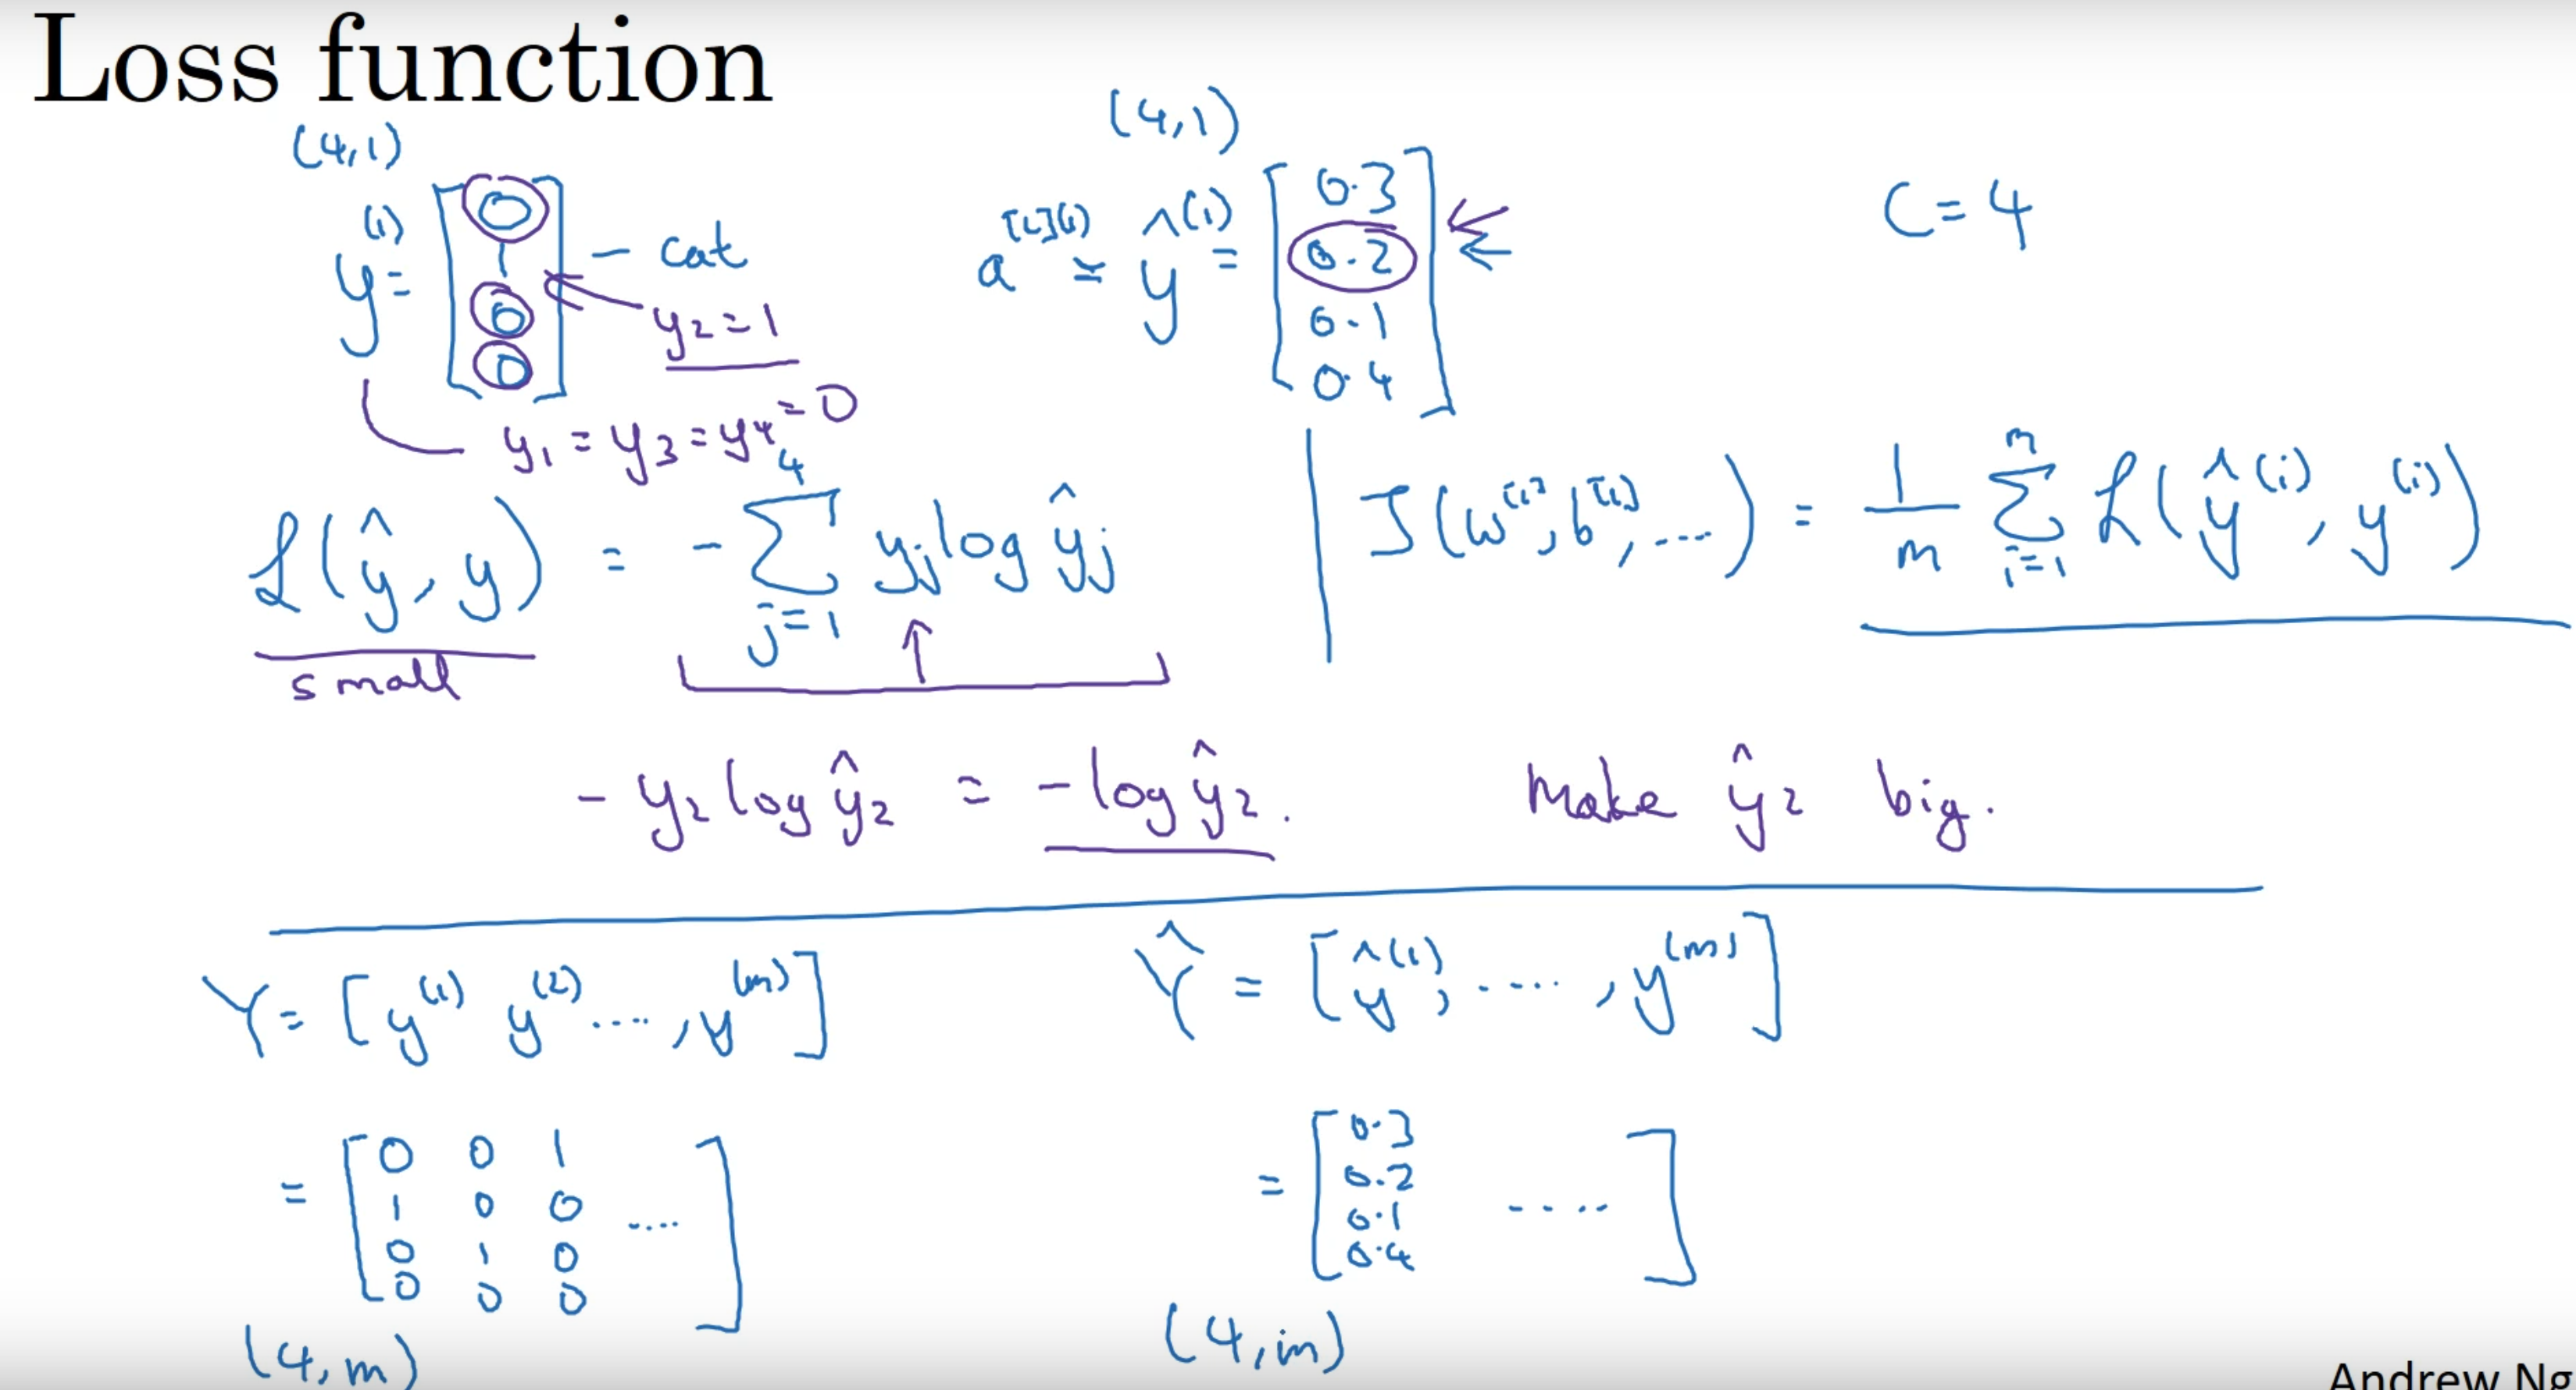 Loss function
(4,1)
y^(1) = [0 1 0 0] – cat
y₂ = 1
y₁ = y₃ = y₄ = 0
(4,1)
a^[L](1) = ŷ^(1) = [0.3 0.2 0.1 0.4]
C = 4
ℒ(ŷ, y) = - ∑_{j=1}^{4} y_j log ŷ_j
small
J(w^[1], b^[1], ....) = 1/m ∑_{i=1}^{m} ℒ(ŷ^(i), y^(i))
- y₂ log ŷ₂ = - log ŷ₂. Make ŷ₂ big.
Y = [y^(1) y^(2) ...., y^(m)]
= [0 0 1
1 0 0 ....
0 1 0
0 0 0]
(4,m)
Ŷ = [ŷ^(1), ....., y^(m)]
= [0.3
0.2 .....
0.1
0.4]
(4,m)
Andrew Ng